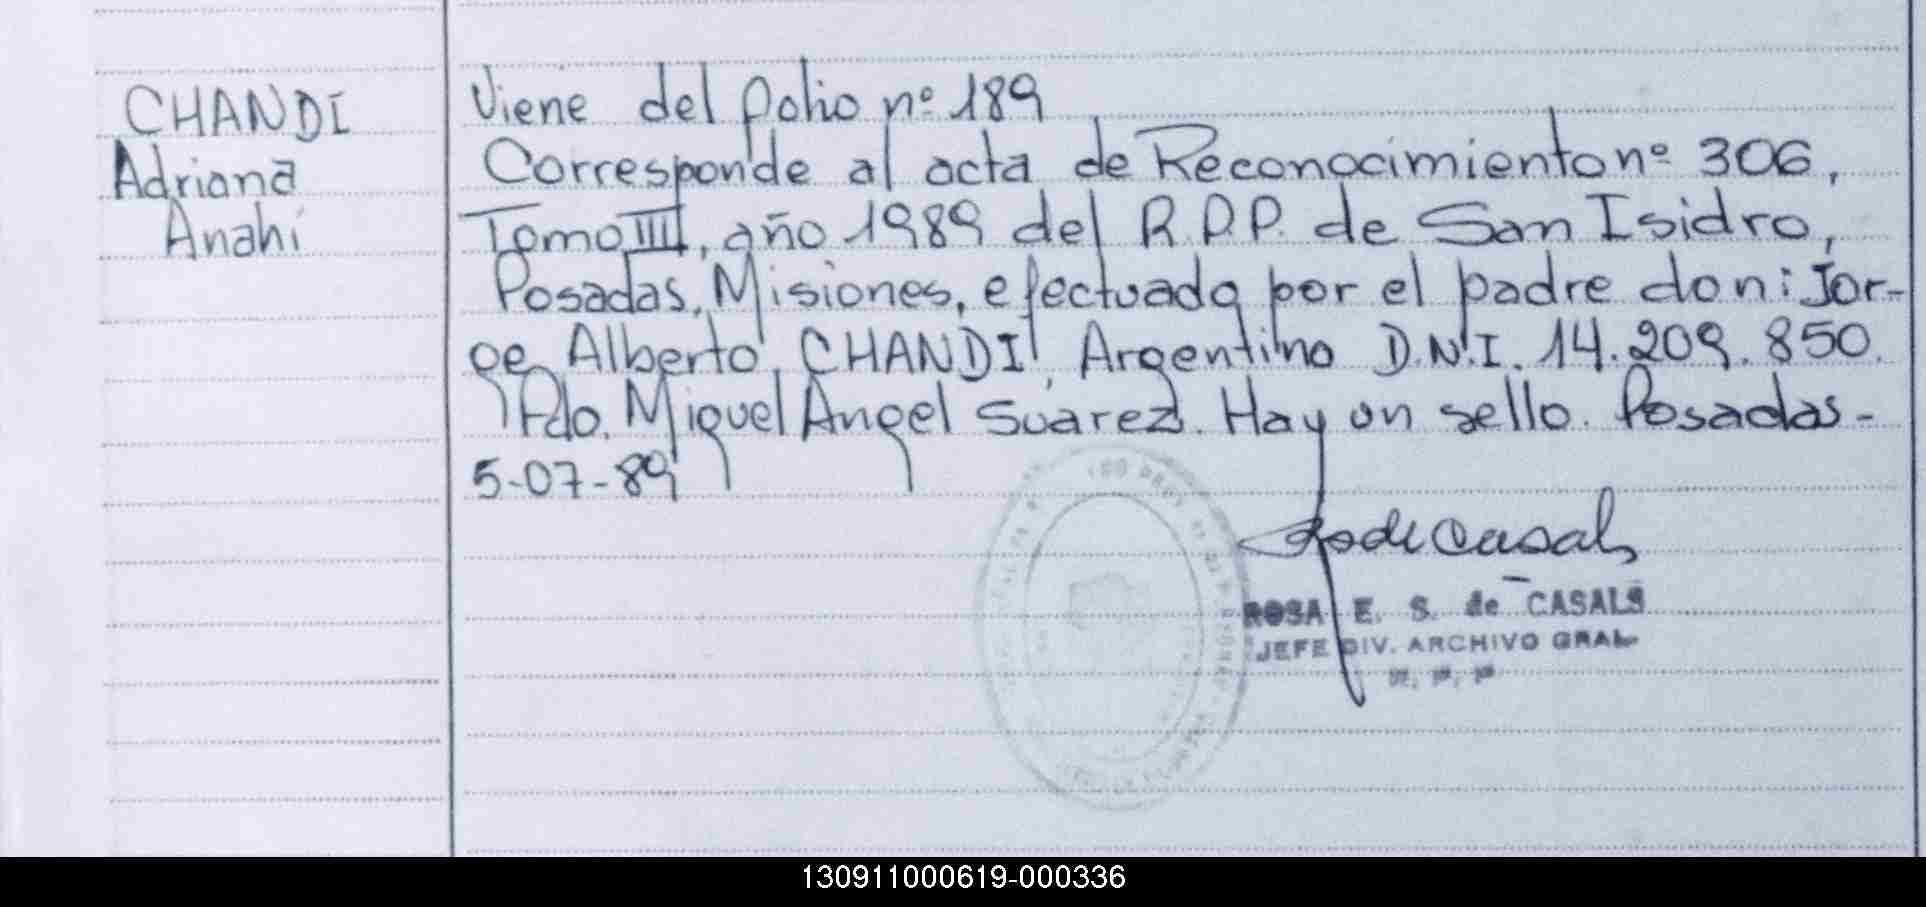 CHANDI
Adriana
Anahi
Viene del folio nº 189
Corresponde al acta de Reconocimiento nº 306,
Tomo III, año 1989 del R.P.P. de San Isidro,
Posadas, Misiones, efectuado por el padre don: Jor-
ge Alberto CHANDI, Argentino D.N.I. 14.209.850.
Fdo. Miguel Angel Suarez. Hay un sello. Posadas-
5-07-89
ROSA E. S. de CASALS
JEFE DIV. ARCHIVO GRAL
R. P. P
130911000619-000336